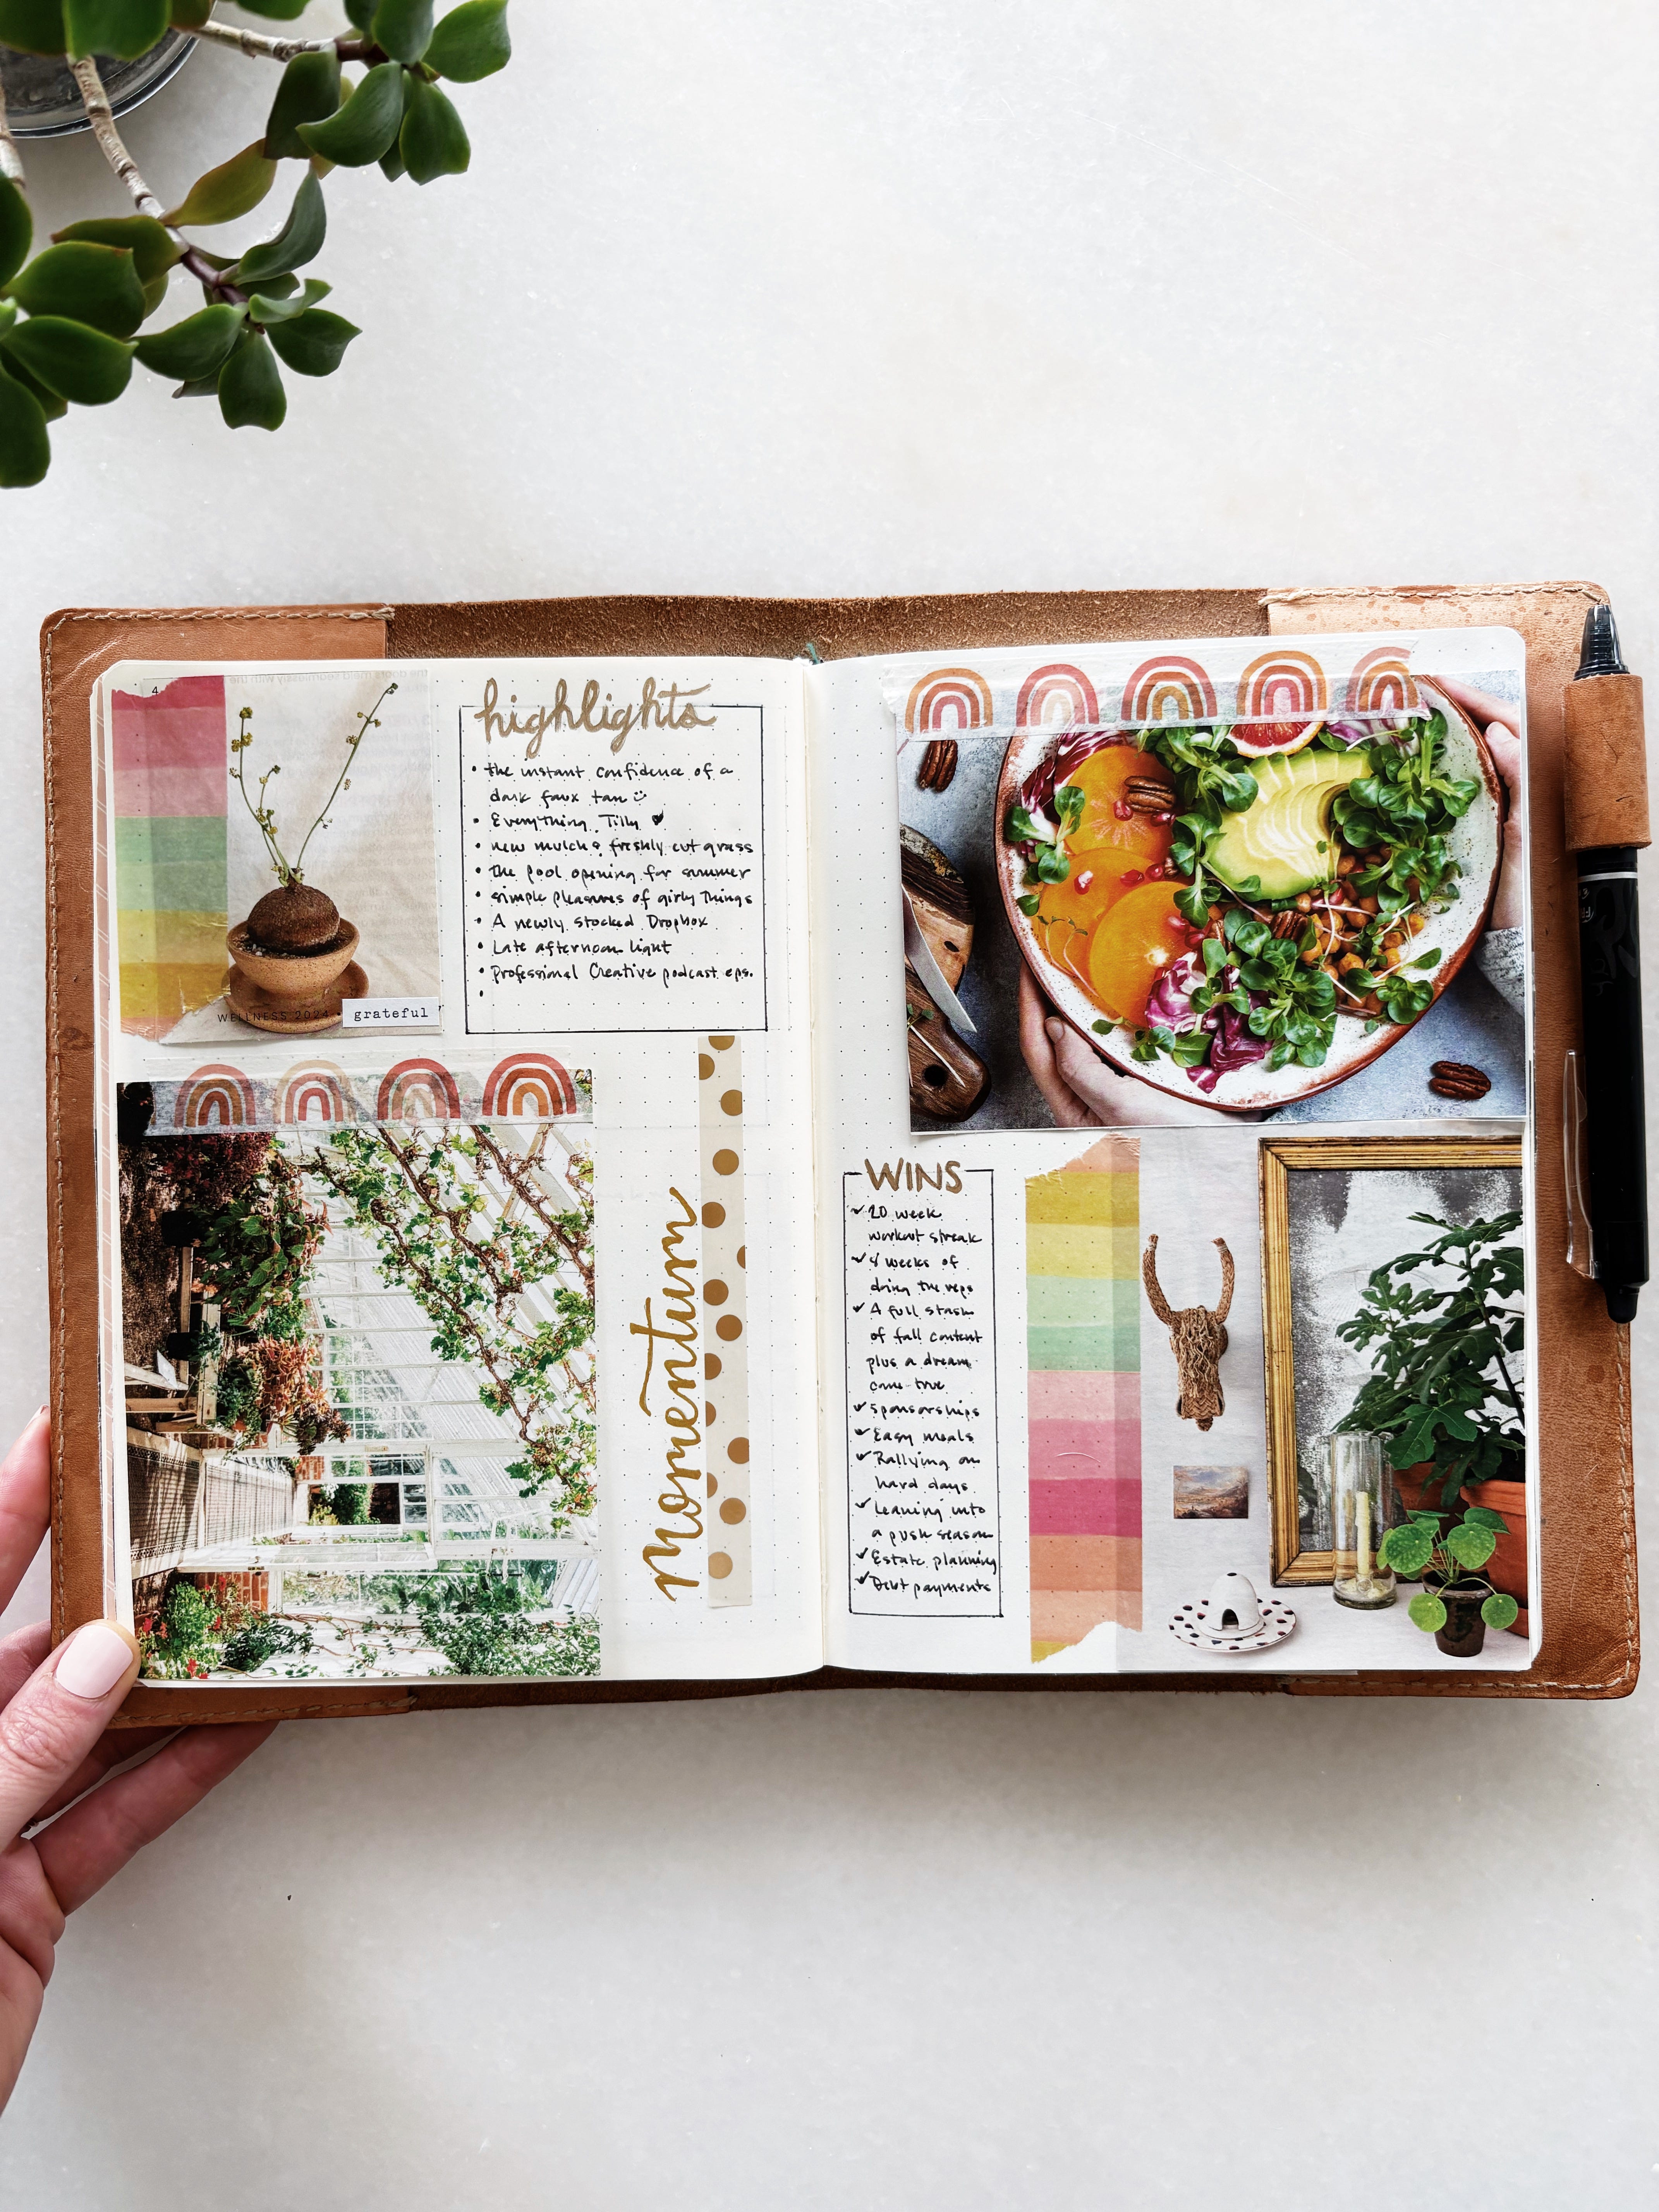 4
highlights
• the instant confidence of a
dark faux tan
• Everything Tilly ♥
• new mulch & freshly cut grass
• the pool opening for summer
• simple pleasures of girly things
• A newly stocked Dropbox
• Late afternoon light
• Professional Creative podcast eps.
•
WELLNESS 2024
grateful
momentum
WINS
✓ 20 week
workout streak
✓ 8 weeks of
doing the reps
✓ A full stash
of fall content
plus a dream
come true
✓ sponsorships
✓ Easy meals
✓ Rallying on
hard days
✓ Leaning into
a push season
✓ Estate planning
✓ Debt payments